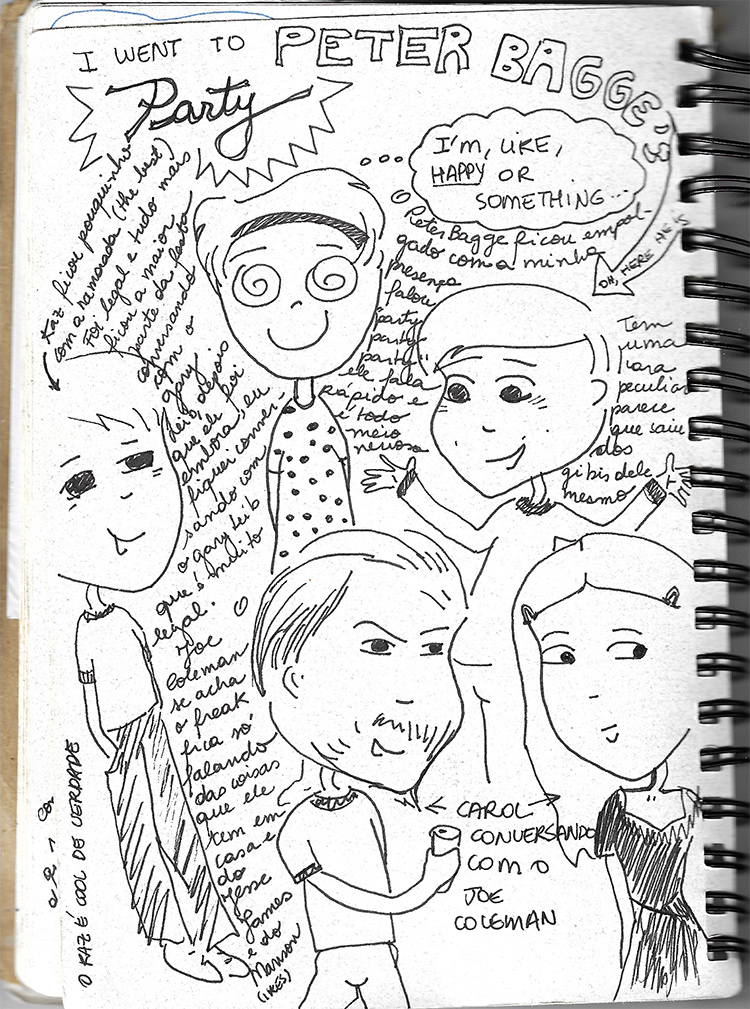 I WENT TO PETER BAGGE'S
Party
I'M, LIKE,
HAPPY OR
SOMETHING...
OH, HERE HE IS
O Peter Bagge ficou empol-
gado com a minha
presença
falou
"party
party
party"
ele fala
rápido e
é todo
meio
nervoso
Tem
uma
cara
peculiar
parece
que saiu
dos
gibis dele
mesmo
Kaz ficou pouquinho
com a namorada (the best)
Foi legal e tudo mais
ficou a maior
parte da festa
conversando
com o
gary
leib, depois
que ele foi
embora, eu
fiquei conver-
sando com
o gary leib
que é muito
legal.
O
Joe
Coleman
se acha
o freak
fica só
falando
das coisas
que ele
tem em
casa e
do
Jesse
James
e do
Manson
O KAZ É COOL DE VERDADE
CAROL
CONVERSANDO
COM O
JOE
COLEMAN